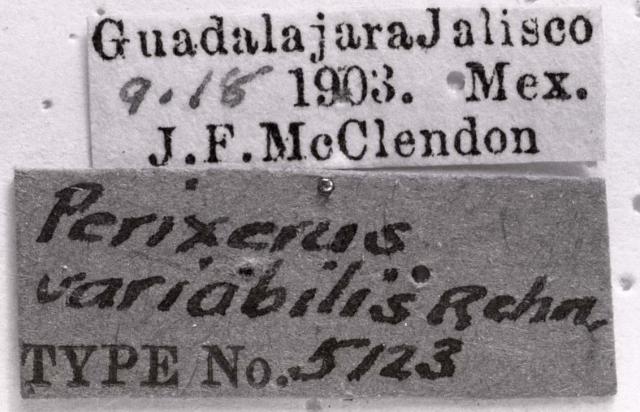 Guadalajara Jalisco
9.18 1903. Mex.
J.F.McClendon
Perixerus
variabilis Rehn.
TYPE No. 5123